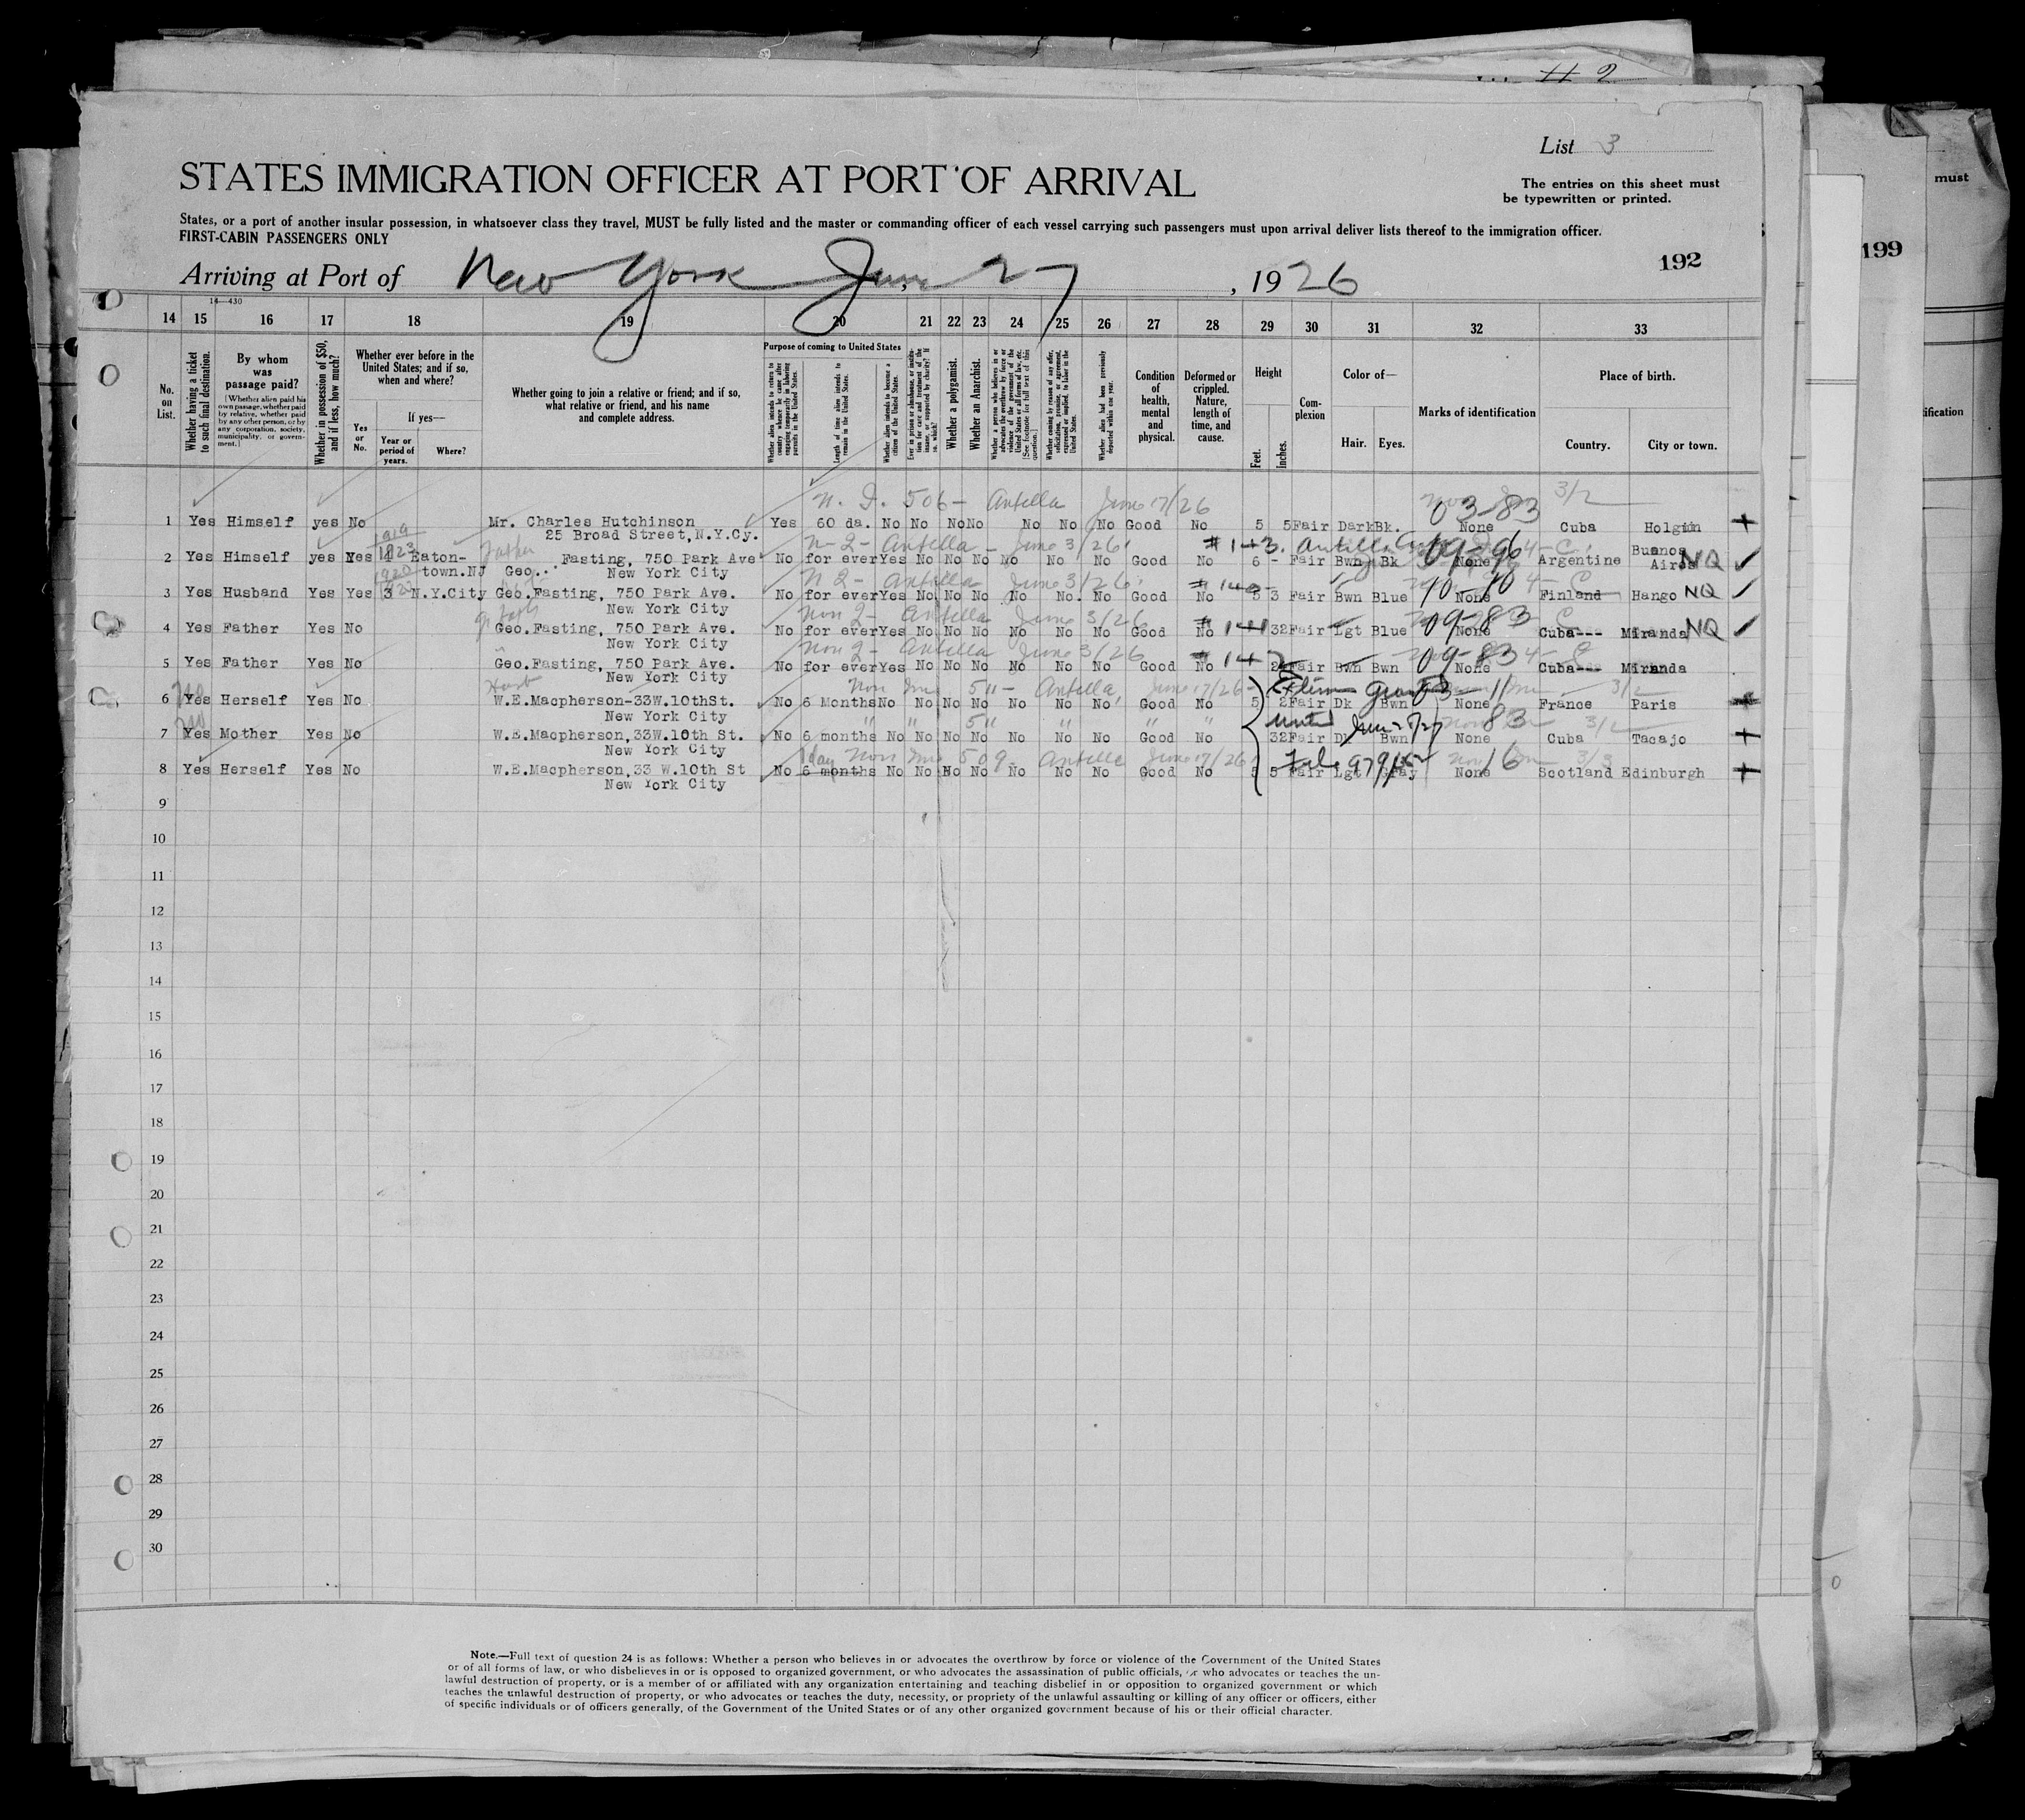 # 2
List 3
STATES IMMIGRATION OFFICER AT PORT OF ARRIVAL
The entries on this sheet must
be typewritten or printed.
must
States, or a port of another insular possession, in whatsoever class they travel, MUST be fully listed and the master or commanding officer of each vessel carrying such passengers must upon arrival deliver lists thereof to the immigration officer.
FIRST-CABIN PASSENGERS ONLY
199
192
Arriving at Port of New York 27, 1926
14—430
14 15 16 17 18 19 20 21 22 23 24 25 26 27 28 29 30 31 32 33
No. on List.
Whether having a ticket to such final destination.
By whom was passage paid?
[Whether alien paid his own passage, whether paid by relative, whether paid by any other person, or by any corporation, society, municipality, or government.]
Whether in possession of $50, and if less, how much?
Whether ever before in the United States; and if so, when and where?
Yes or No.
If yes—
Year or period of years.
Where?
Whether going to join a relative or friend; and if so, what relative or friend, and his name and complete address.
Purpose of coming to United States
Whether alien intends to return to country whence he came after engaging temporarily in laboring pursuits in the United States.
Length of time alien intends to remain in the United States.
Whether alien intends to become a citizen of the United States.
Whether a polygamist.
Whether an Anarchist.
Whether alien had been previously deported within one year.
Condition of health, mental and physical.
Deformed or crippled. Nature, length of time, and cause.
Height
Feet.
Inches.
Complexion
Color of—
Hair. Eyes.
Marks of identification
Place of birth.
Country. City or town.
ification
506 – Antilla June 17/26 3/2
03-83
1 Yes Himself yes No Mr. Charles Hutchinson Yes 60 da. No No No No No No No Good No 5 5 Fair Dark Bk. None Cuba Holguin +
25 Broad Street, N.Y.Cy.
Antilla – June 3/26 09-96
2 Yes Himself yes Yes Eaton- Fasting, 750 Park Ave No for ever Yes No No No No No No Good No 6 - Fair Bwn Bk None Argentine Buenos Aires NQ
town. NJ Geo. New York City
Antilla June 3/26 # 140 10-10
3 Yes Husband Yes Yes N.Y.City Geo. Fasting, 750 Park Ave. No for ever Yes No No No No No No Good No 5 3 Fair Bwn Blue None Finland Hango NQ
New York City
Non 2- Antilla June 3/26 # 141 09-83
4 Yes Father Yes No Geo. Fasting, 750 Park Ave. No for ever Yes No No No No No No Good No 32 Fair Lgt Blue None Cuba--- Miranda NQ
New York City
Non 2- Antilla June 3/26 # 142 09-83
5 Yes Father Yes No Geo. Fasting, 750 Park Ave. No for ever Yes No No No No No No Good No Fair Bwn Bwn None Cuba--- Miranda
New York City
511 – Antilla June 17/26 3/2
6 Yes Herself Yes No W.E.Macpherson-33W.10thSt. No 6 Months No No No No No No No Good No 5 2 Fair Dk Bwn None France Paris
New York City
" " 511 " " " until 83 3/2
7 Yes Mother Yes No W.E.Macpherson, 33W.10th St. No 6 months No No No No No No No Good No 32 Fair Dk Bwn None Cuba Tacajo +
New York City
509 – Antilla June 17/26 16 3/3
8 Yes Herself Yes No W.E.Macpherson, 33 W.10th St No 6 months No No No No No No No Good No 5 5 Fair Lgt Gray None Scotland Edinburgh +
New York City
9
10
11
12
13
14
15
16
17
18
19
20
21
22
23
24
25
26
27
28
29
30
Note.—Full text of question 24 is as follows: Whether a person who believes in or advocates the overthrow by force or violence of the Government of the United States
or of all forms of law, or who disbelieves in or is opposed to organized government, or who advocates the assassination of public officials, or who advocates or teaches the un-
lawful destruction of property, or is a member of or affiliated with any organization entertaining and teaching disbelief in or opposition to organized government or which
teaches the unlawful destruction of property, or who advocates or teaches the duty, necessity, or propriety of the unlawful assaulting or killing of any officer or officers, either
of specific individuals or of officers generally, of the Government of the United States or of any other organized government because of his or their official character.